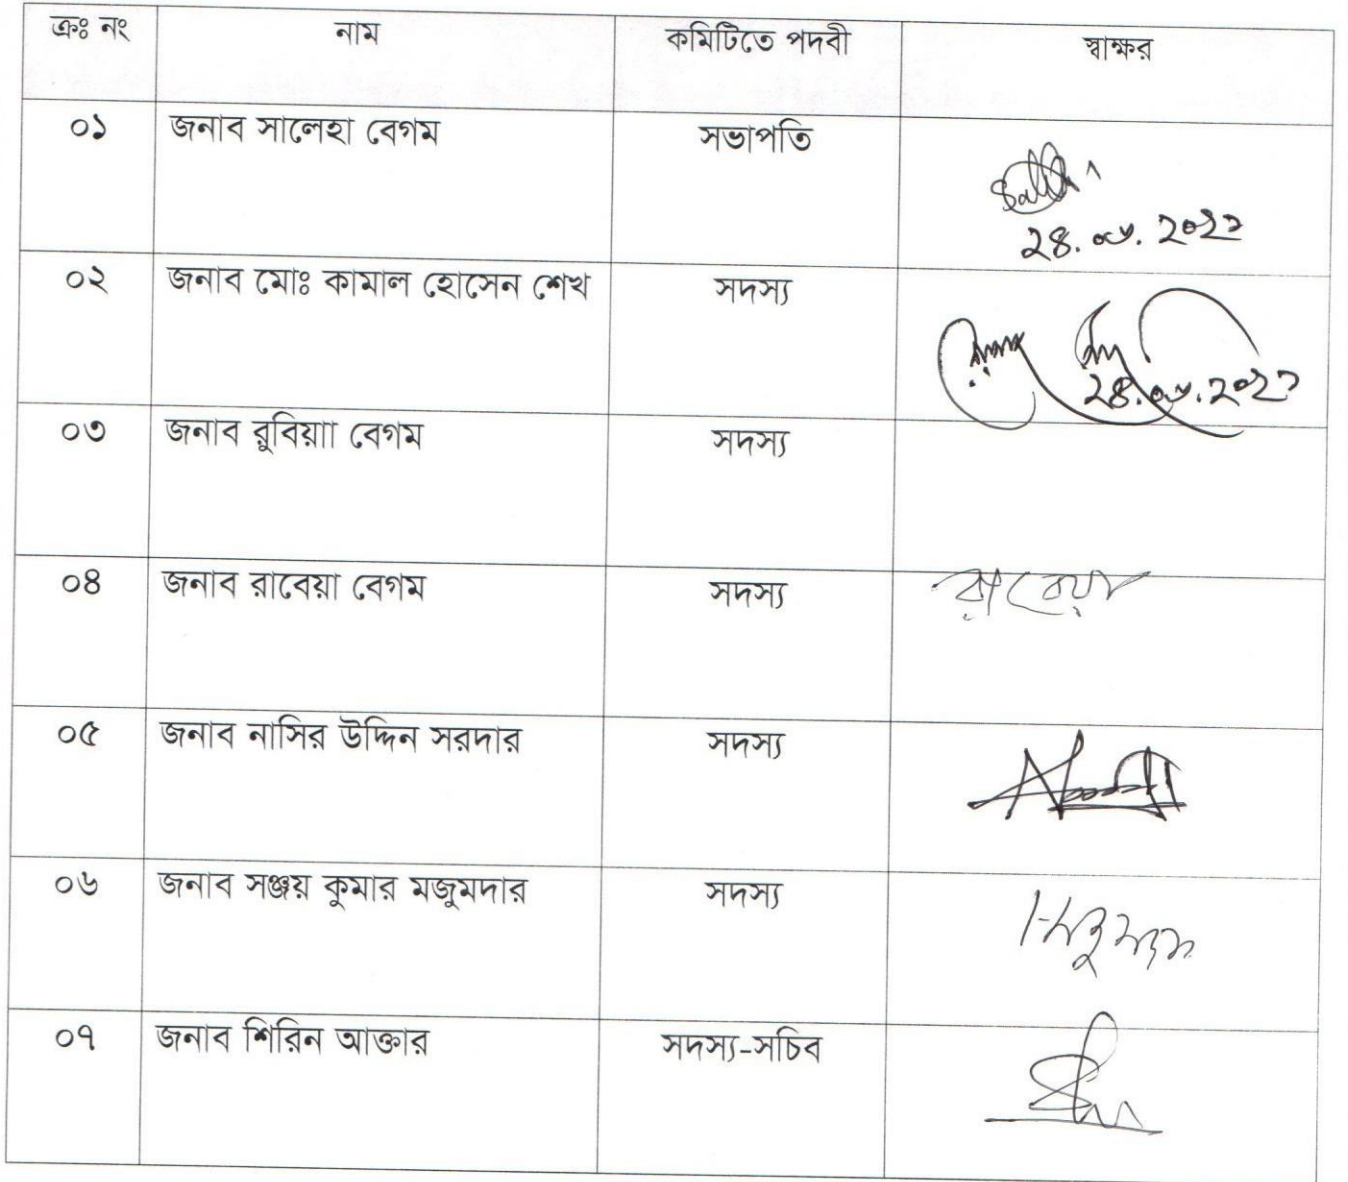 ক্রঃ নং নাম কমিটিতে পদবী স্বাক্ষর
০১ জনাব সালেহা বেগম সভাপতি
২৪.০৮.২০২২
০২ জনাব মোঃ কামাল হোসেন শেখ সদস্য
২৪.০৮.২০২২
০৩ জনাব রুবিয়াা বেগম সদস্য
০৪ জনাব রাবেয়া বেগম সদস্য রাবেয়া
০৫ জনাব নাসির উদ্দিন সরদার সদস্য
০৬ জনাব সঞ্জয় কুমার মজুমদার সদস্য
০৭ জনাব শিরিন আক্তার সদস্য-সচিব